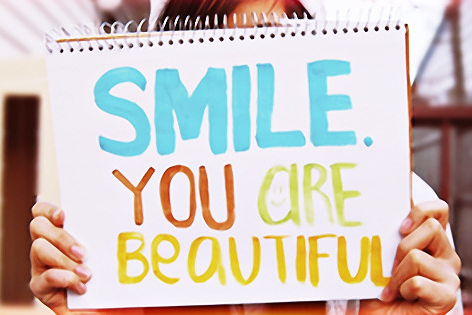 SMILE.
YOU aRE
BEaUTIFUL